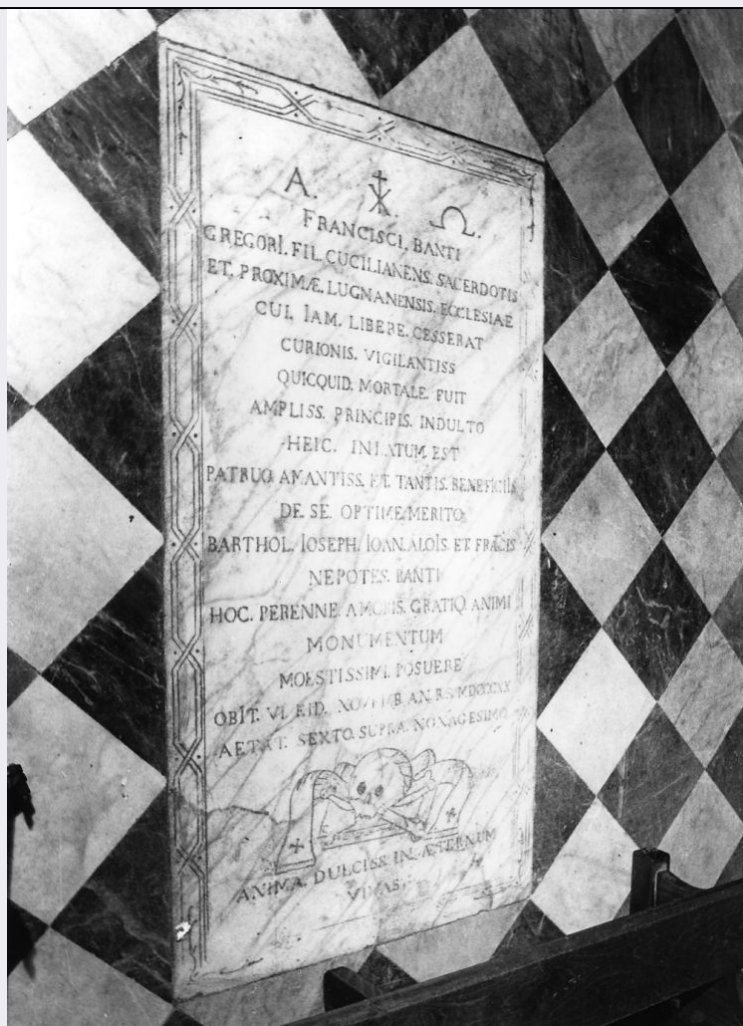 A. ☧. Ω.
FRANCISCI. BANTI
GREGORI. FIL. CUCILIANENS. SACERDOTIS
ET. PROXIMÆ. LUGNANENSIS. ECCLESIAE
CUI. IAM. LIBERE. CESSERAT
CURIONIS. VIGILANTISS
QUICQUID. MORTALE. FUIT
AMPLISS. PRINCIPIS. INDULTO
HEIC. INLATUM. EST
PATRUO. AMANTISS. ET. TANTIS. BENEFICIIS
DE. SE. OPTIME. MERITO
BARTHOL. IOSEPH. IOAN. ALOIS. ET.
NEPOTES. BANTI
HOC. PERENNE. AMORIS. GRATIQ. ANIMI
MONUMENTUM
MOESTISSIMI. POSUERE
OBIT. VI. EID. AN.
AETAT. SEXTO. SUPRA. NONAGESIMO
ANIMA. DULCISS. IN. ÆTERNUM
VIVAS